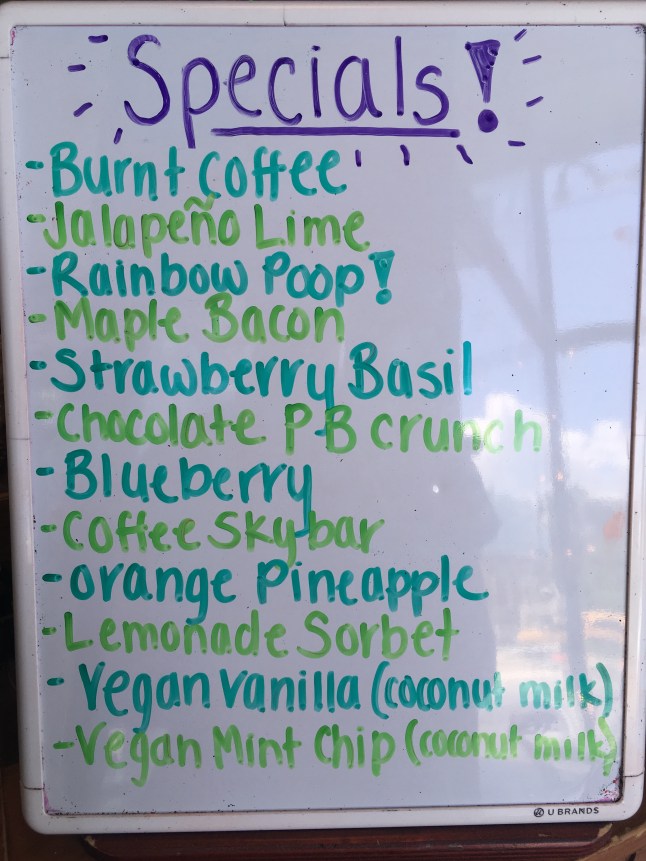 Specials!
-Burnt Coffee
-Jalapeño Lime
-Rainbow Poop!
-Maple Bacon
-Strawberry Basil
-Chocolate PB crunch
-Blueberry
-Coffee Skybar
-orange Pineapple
-Lemonade Sorbet
-Vegan Vanilla (coconut milk)
-Vegan Mint Chip (coconut milk)
U BRANDS